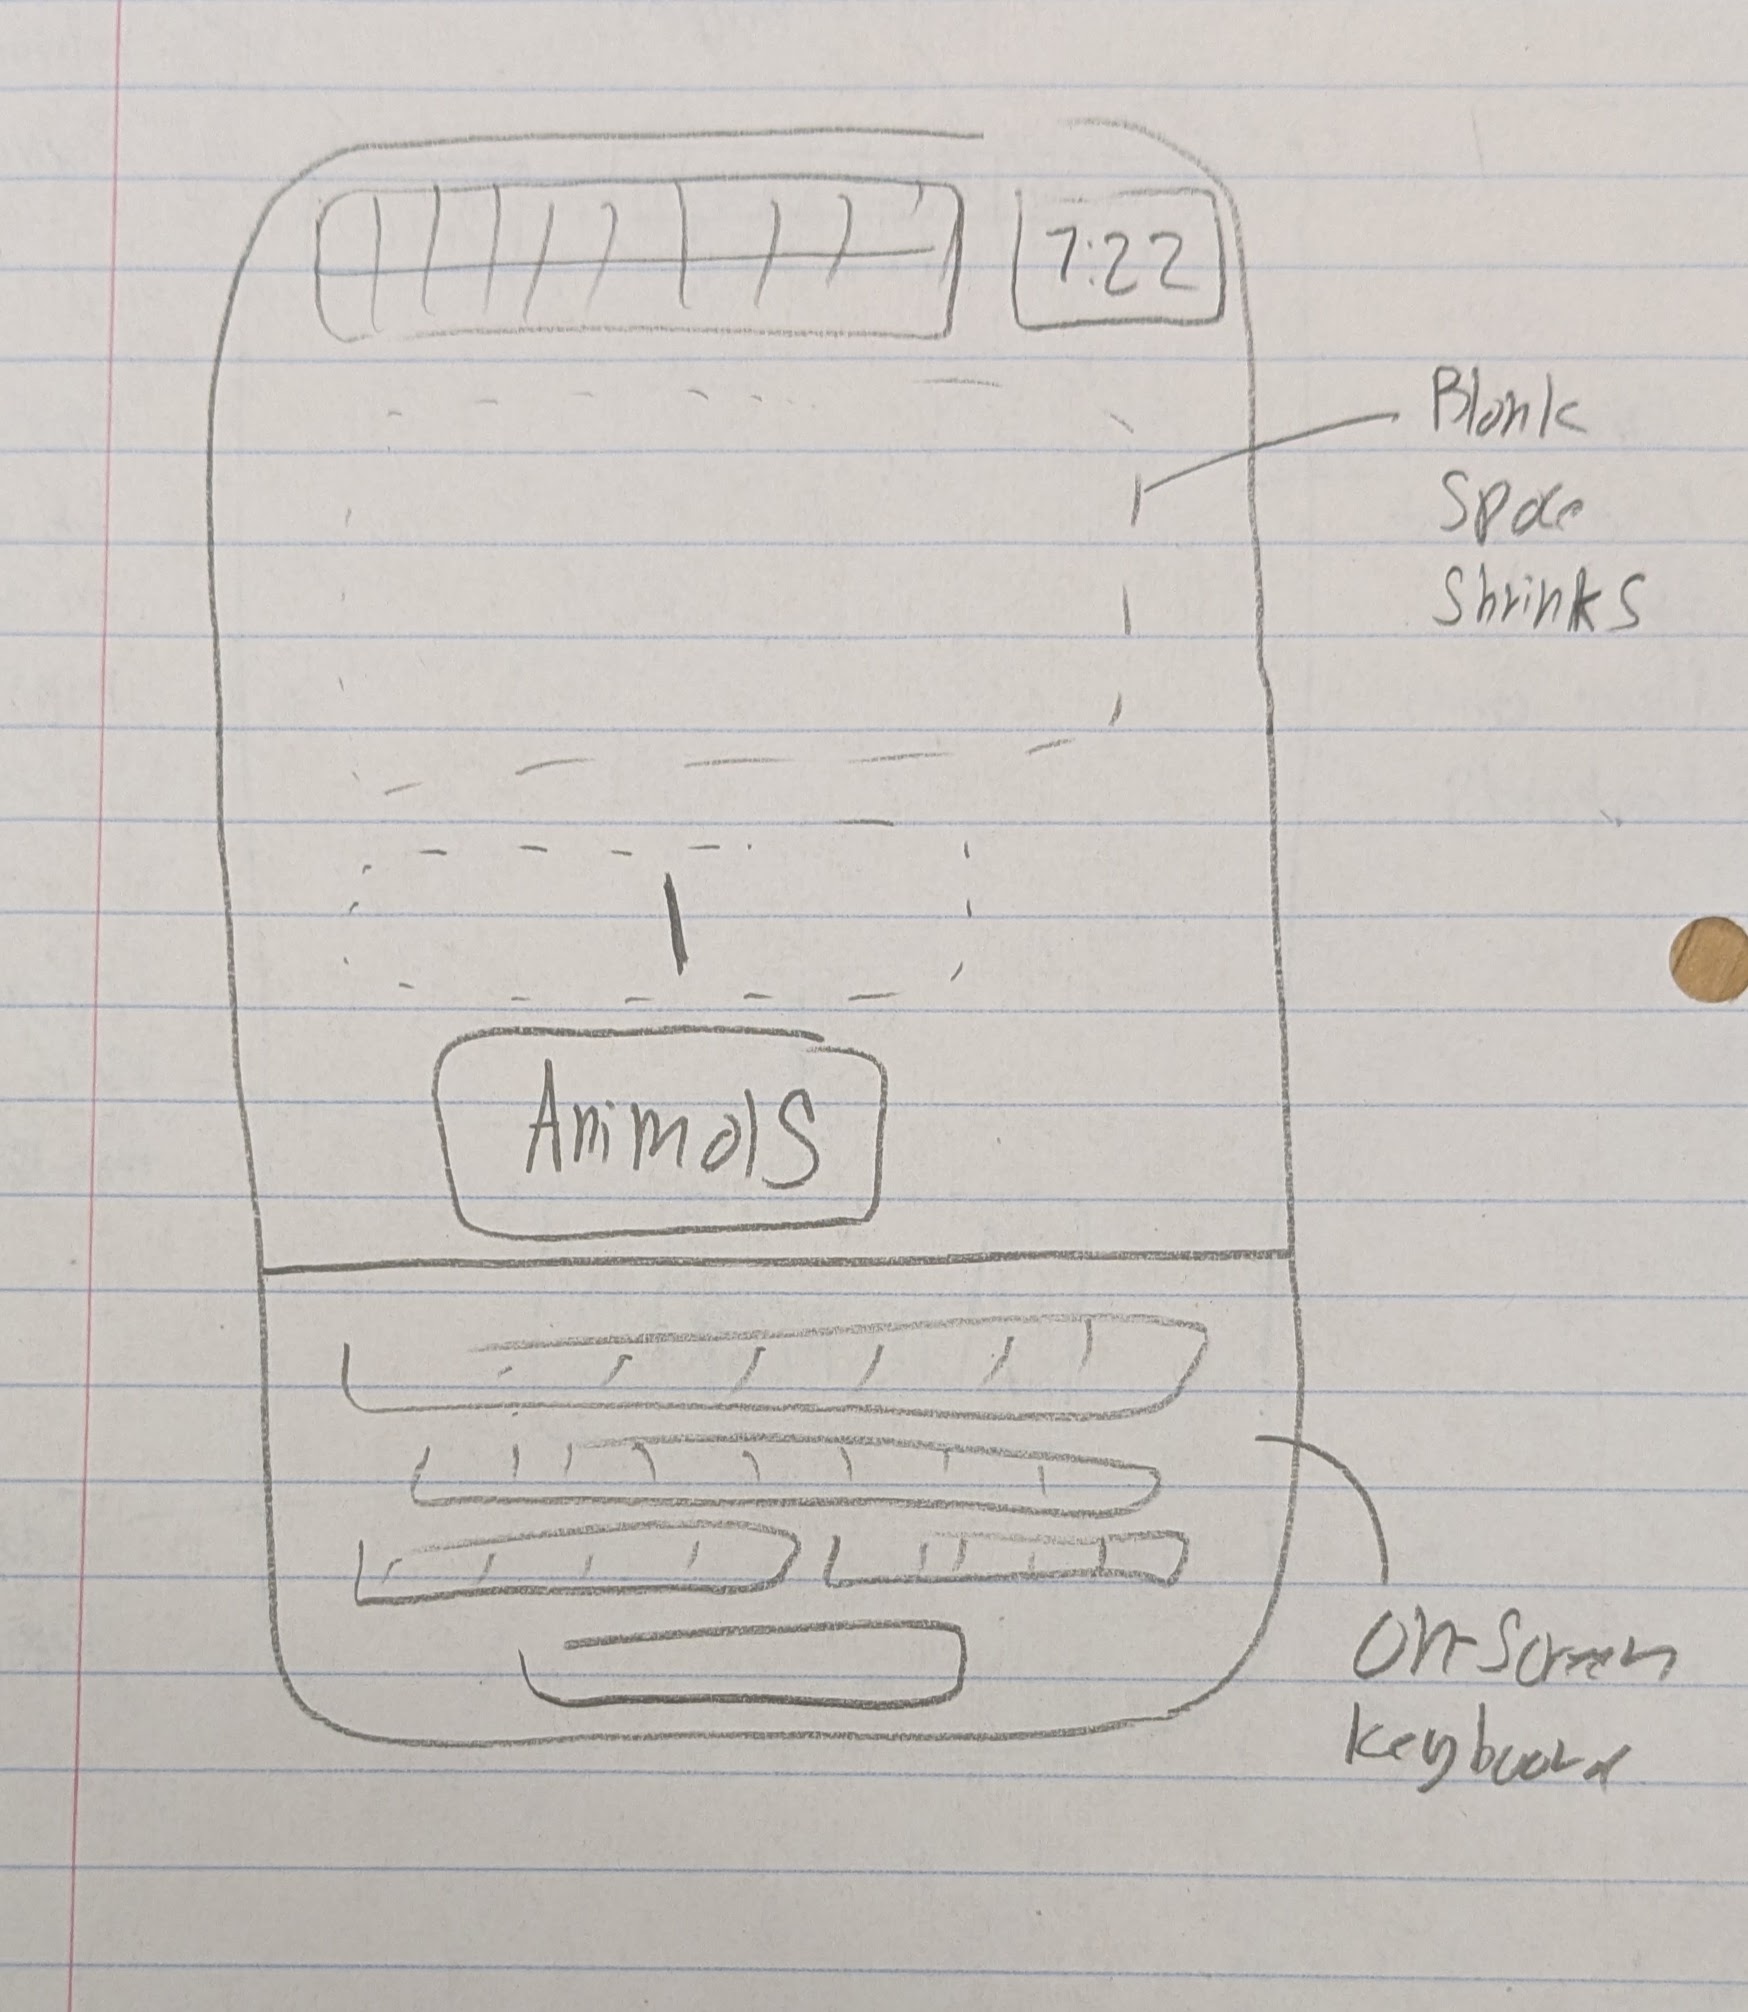 7:22
Blank
Space
Shrinks
Animals
On-Screen
keyboard